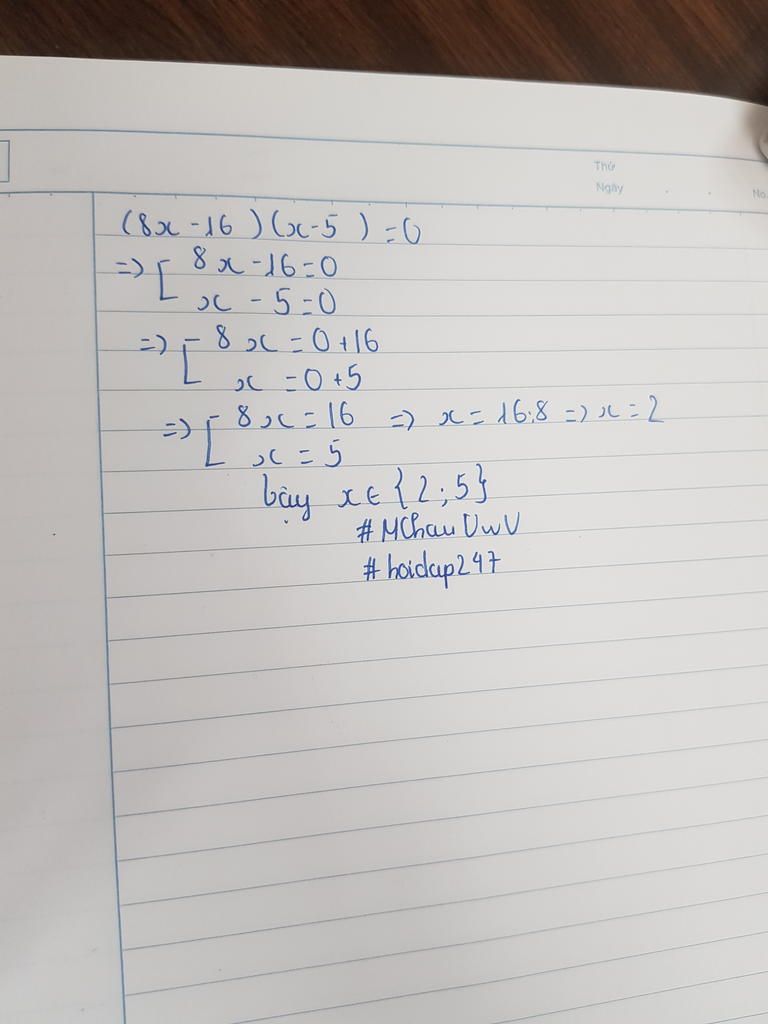 Thứ
Ngày
No.
(8x - 16)(x - 5) = 0
=> [ 8x - 16 = 0
x - 5 = 0
=> [ 8x = 0 + 16
x = 0 + 5
=> [ 8x = 16 => x = 16:8 => x = 2
x = 5
Vậy x ∈ {2; 5}
#MChauUwU
#hoidap247